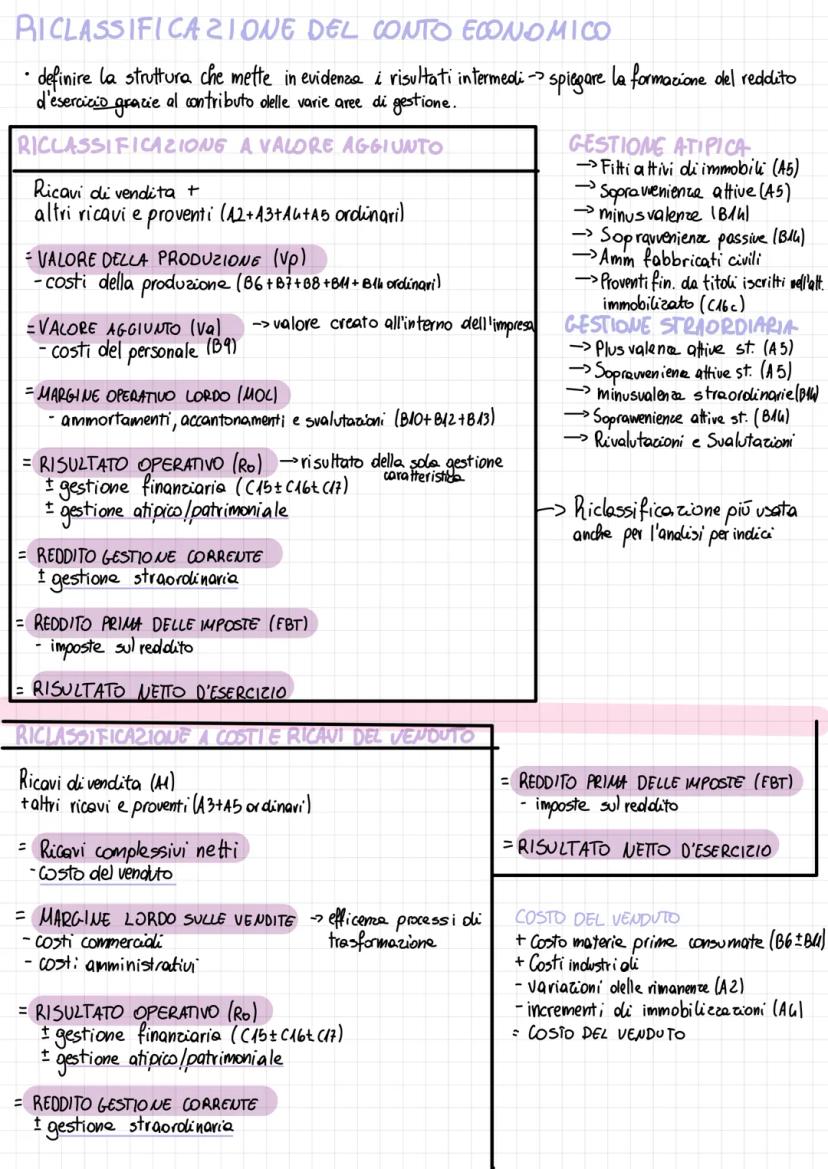 RICLASSIFICAZIONE DEL CONTO ECONOMICO
· definire la struttura che mette in evidenza i risultati intermedi -> spiegare la formazione del reddito
d'esercizio grazie al contributo delle varie aree di gestione.
RICLASSIFICAZIONE A VALORE AGGIUNTO
Ricavi di vendita +
altri ricavi e proventi (A2+A3+A4+A5 ordinari)
= VALORE DELLA PRODUZIONE (Vp)
- costi della produzione (B6+B7+B8+B11+B14 ordinari)
= VALORE AGGIUNTO (Va) -> valore creato all'interno dell'impresa
- costi del personale (B9)
= MARGINE OPERATIVO LORDO (MOL)
- ammortamenti, accantonamenti e svalutazioni (B10+B12+B13)
= RISULTATO OPERATIVO (Ro) -> risultato della sola gestione
caratteristica
± gestione finanziaria (C15±C16±C17)
± gestione atipico/patrimoniale
= REDDITO GESTIONE CORRENTE
± gestione straordinaria
= REDDITO PRIMA DELLE IMPOSTE (EBT)
- imposte sul reddito
= RISULTATO NETTO D'ESERCIZIO
GESTIONE ATIPICA
-> Fitti attivi di immobili (A5)
-> Sopravvenienze attive (A5)
-> minusvalenze (B14)
-> Sopravvenienze passive (B14)
-> Amm fabbricati civili
-> Proventi fin. da titoli iscritti nell'att.
immobilizzato (C16c)
GESTIONE STRAORDIARIA
-> Plusvalenze attive st. (A5)
-> Sopravveniene attive st. (A5)
-> minusvalenze straordinarie (B14)
-> Sopravvenienze attive st. (B14)
-> Rivalutazioni e Svalutazioni
-> Riclassificazione più usata
anche per l'analisi per indici
RICLASSIFICAZIONE A COSTI E RICAVI DEL VENDUTO
Ricavi di vendita (A1)
+altri ricavi e proventi (A3+A5 ordinari)
= Ricavi complessivi netti
- Costo del venduto
= MARGINE LORDO SULLE VENDITE -> efficenza processi di
trasformazione
- costi commerciali
- costi amministrativi
= RISULTATO OPERATIVO (Ro)
± gestione finanziaria (C15±C16±C17)
± gestione atipico/patrimoniale
= REDDITO GESTIONE CORRENTE
± gestione straordinaria
= REDDITO PRIMA DELLE IMPOSTE (EBT)
- imposte sul reddito
= RISULTATO NETTO D'ESERCIZIO
COSTO DEL VENDUTO
+ Costo materie prime consumate (B6±B11)
+ Costi industriali
- variazioni delle rimanenze (A2)
- incrementi di immobilizzazioni (A4)
= COSTO DEL VENDUTO